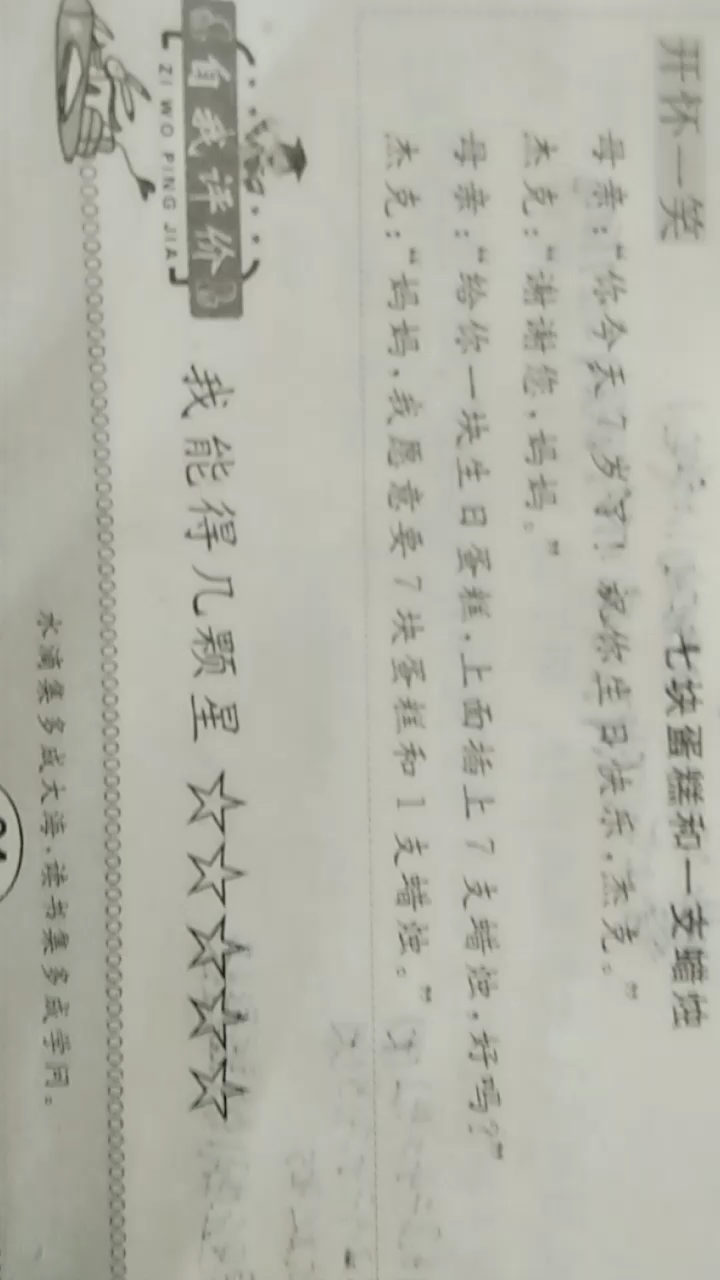 开怀一笑
七块蛋糕和一支蜡烛
母亲：“你今天7岁了！祝你生日快乐，杰克。”
杰克：“谢谢您，妈妈。”
母亲：“给你一块生日蛋糕，上面插上7支蜡烛，好吗？”
杰克：“妈妈，我愿意要7块蛋糕和1支蜡烛。”
自我评价
ZI WO PING JIA
我能得几颗星 ☆☆☆☆☆
水滴集多成大海，读书集多成学问。